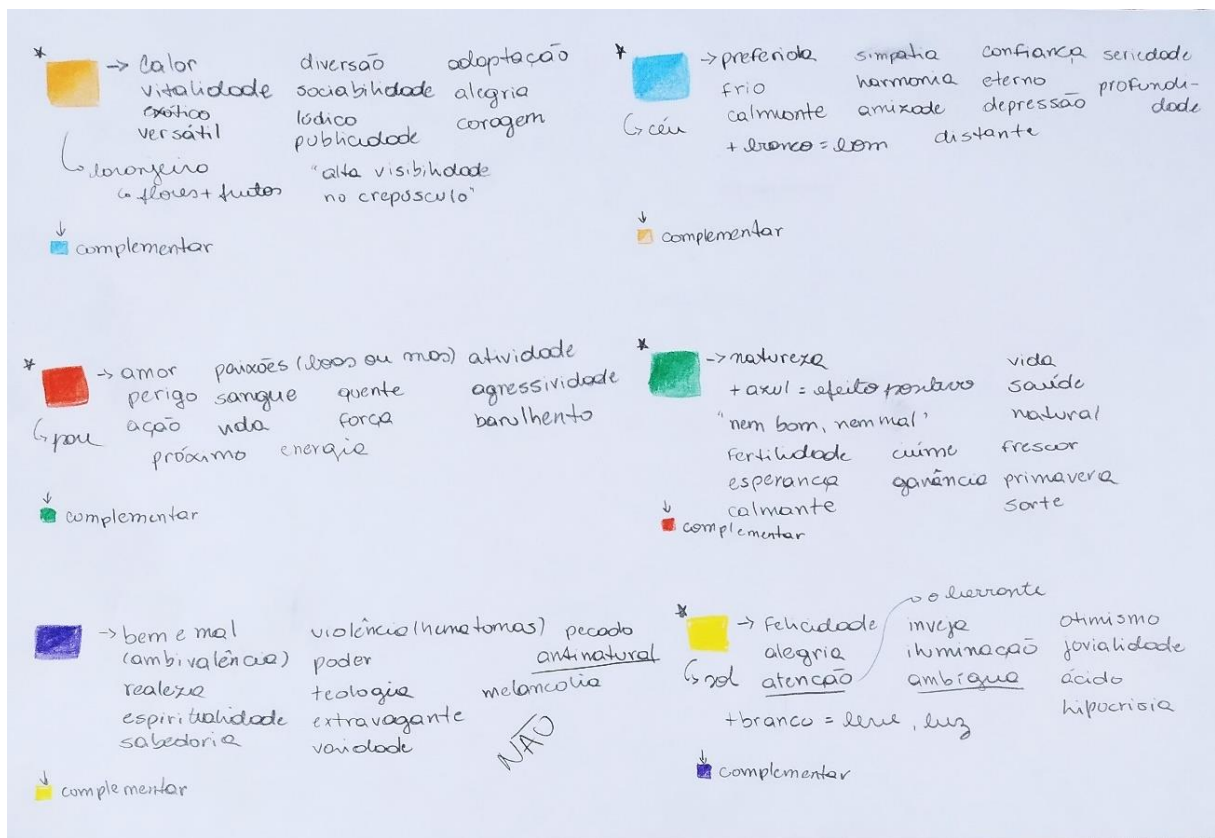 * → calor diversão adaptação
vitalidade sociabilidade alegria
exótico lúdico coragem
versátil publicidade
↳ laranjeira "alta visibilidade
↳ flores + frutos no crepúsculo"
↓
complementar
* → preferida simpatia confiança seriedade
frio harmonia eterno profundi-
calmante amizade depressão dade
↳ céu + branco = bom distante
↓
complementar
* → amor paixões (boas ou más) atividade
perigo sangue quente agressividade
↳ ação vida força barulhento
próximo energia
↓
complementar
* → natureza vida
+ azul = efeito positivo saúde
"nem bom, nem mal" natural
fertilidade ciúme frescor
esperança ganância primavera
calmante sorte
↓
complementar
→ bem e mal violência (hematomas) pecado
(ambivalência) poder antinatural
realeza teologia melancolia
espiritualidade extravagante
sabedoria vaidade NÃO
↓
complementar
→ o berrante
* → felicidade inveja otimismo
alegria iluminação jovialidade
↳ sol atenção ambígua ácido
hipocrisia
+branco = leve, luz
↓
complementar